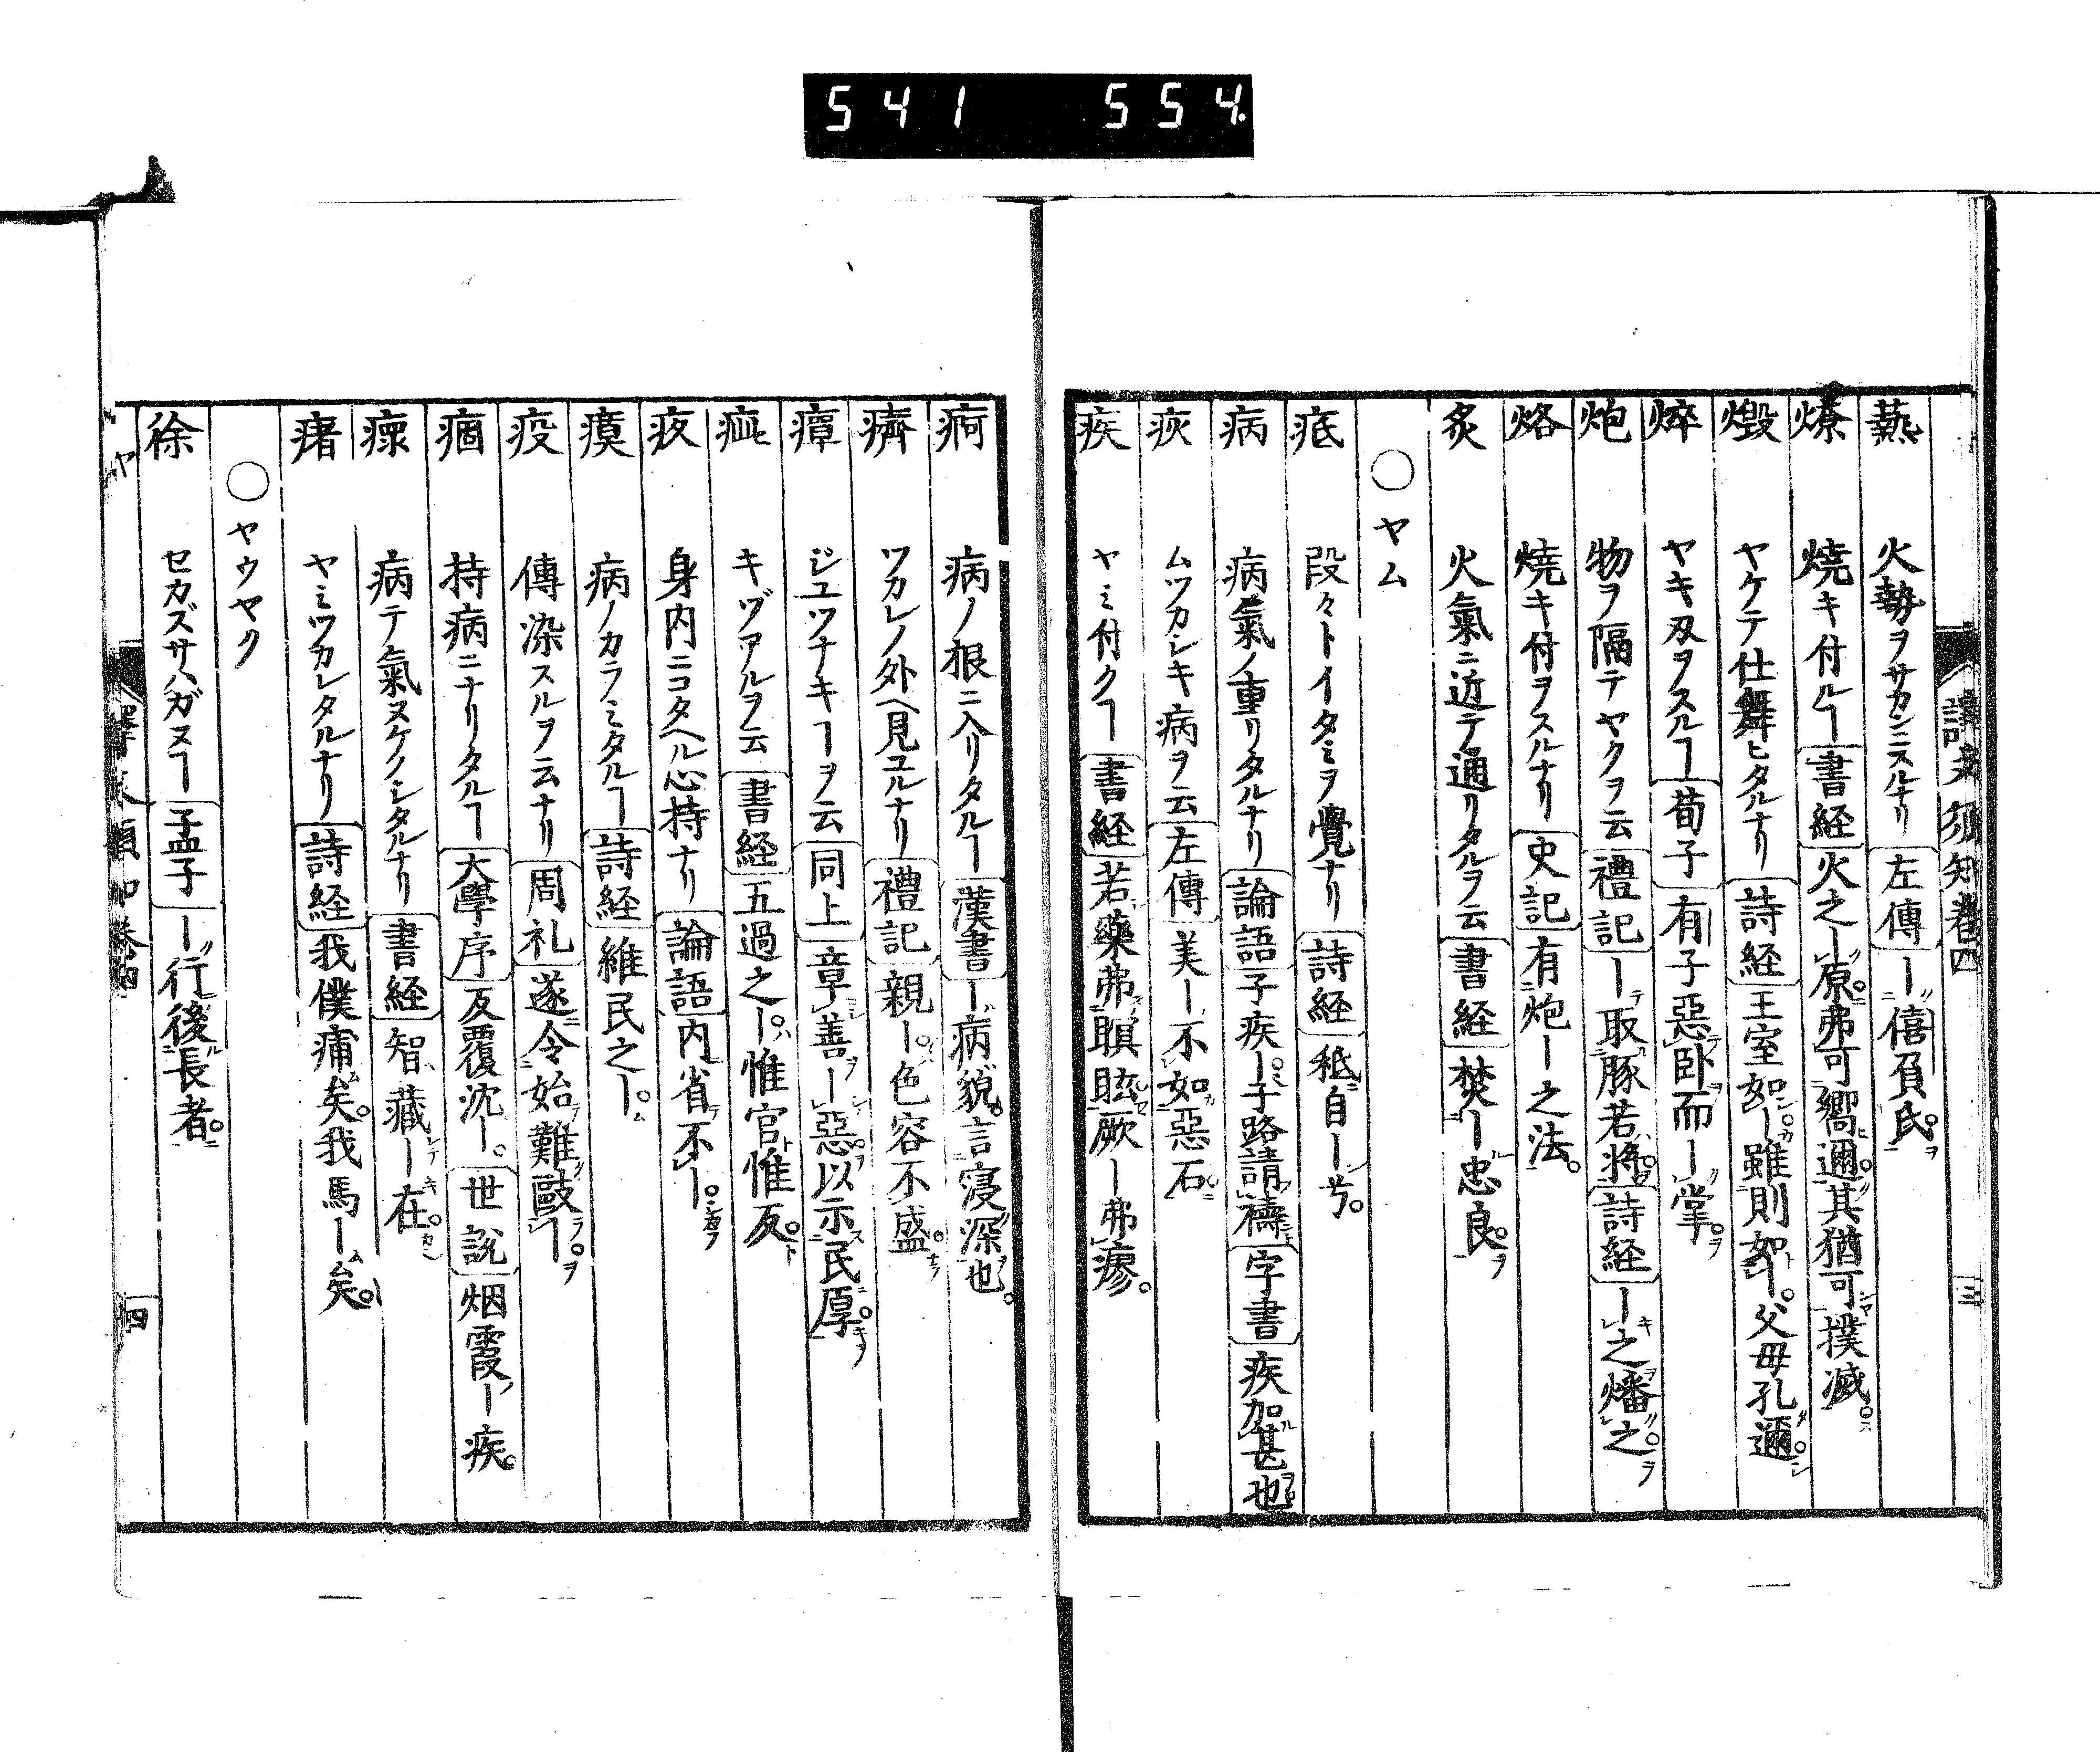 541 554
譯文須知卷四 三
爇 火勢ヲサカンニスルナリ 左傳 ー僖負氏。
燎 燒キ付ルヿ 書経 火之ー原。弗可嚮邇。其猶可撲滅。
燬 ヤケテ仕舞ヒタルナリ 詩経 王室如ー。雖則如ー。父母孔邇。
焠 ヤキ刃ヲスルヿ 荀子 有子惡臥而ー掌。
炮 物ヲ隔テヤクヲ云 禮記 ー取豚若將。 詩経 ー之燔之。
烙 燒キ付ヲスルナリ 史記 有炮ー之法。
炙 火氣ニ近テ通リタルヲ云 書経 焚ー忠良。
○ヤム
疧 段々トイタミヲ覺ナリ 詩経 秪自ー兮。
病 病氣ノ重リタルナリ 論語 子疾ー。子路請禱。 字書 疾加甚也
疢 ムツカシキ病ヲ云 左傳 美ー不如惡石。
疾 ヤミ付クヿ 書経 若藥弗瞑眩。厥ー弗瘳。
痾 病ノ根ニ入リタルヿ 漢書 ー病貌。言寖深也。
癠 ツカレノ外ヘ見ユルナリ 禮記 親ー。色容不盛。
瘴 ジユツナキヿヲ云 同上 章善ー惡。以示民厚。
疵 キヅアルヲ云 書経 五過之ー。惟官惟反。
疚 身内ニコタヘル心持ナリ 論語 内省不ー。
瘼 病ノカラミタルヿ 詩経 維民之ー。
疫 傳染スルヲ云ナリ 周礼 遂令始難敺ー。
痼 持病ニナリタルヿ 大學序 反覆沈ー。 世説 烟霞ー疾。
瘝 病テ氣ヌケノシタルナリ 書経 智藏ー在。
瘏 ヤミツカレタルナリ 詩経 我僕痡矣。我馬ー矣。
○ヤウヤク
徐 セカズサハガヌヿ 孟子 ー行後長者。
ヤ 四